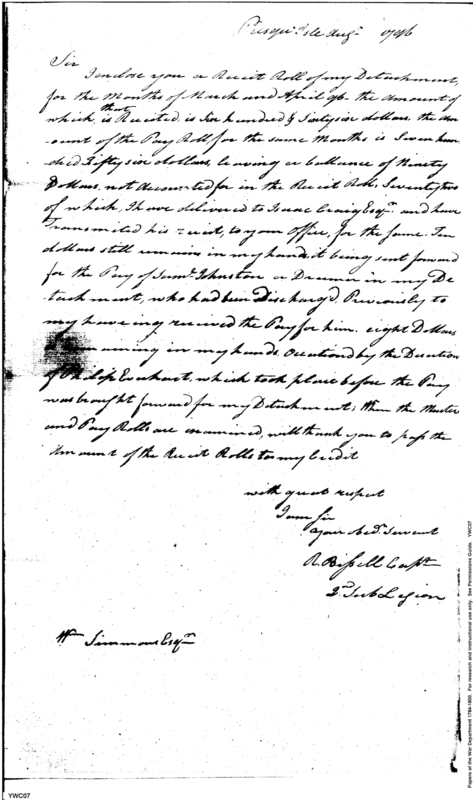 Presqu' Isle Augt 1796
Sir
I enclose you a Reciet Roll of my Detachment,
for the Months of March and April 96. the amount of
that
which is Recited is Six hundred & Sixty six dollars the am
ount of the Pay Roll for the same Months is Seven hun
dred Fifty six dollars, leaving a ballance of Ninety
Dollars, not accounted for in the Reciet Roll, Seventy two
of which, I have delivered to Isaac Craig Esqr. and have
Transmited his reciet, to your Office, for the same. Ten
dollars still remains in my hands, it being sent forward
for the Pay of Saml. Jhnston a Drumer in my De
tachment, who had been Discharg'd, Previously to
my haveing received the Pay for him. eight Dollars
remaining in my hands Occationd by the Desertion
of Philip Evehart, which took place before the Pay
was brought forward for my Detachment; When the Muster
and Pay Rolls are examined, will thank you to pass the
Amount of the Reciet Rolls to my Credit
with great respect
I am Sir
your Obedt. Servant
R. Bissell Capt.
2nd. Sub Legion
Wm Simmons Esqr.
Papers of the War Department 1784-1800. For research and instructional use only. See Permissions Guide. YWC07
YWC07